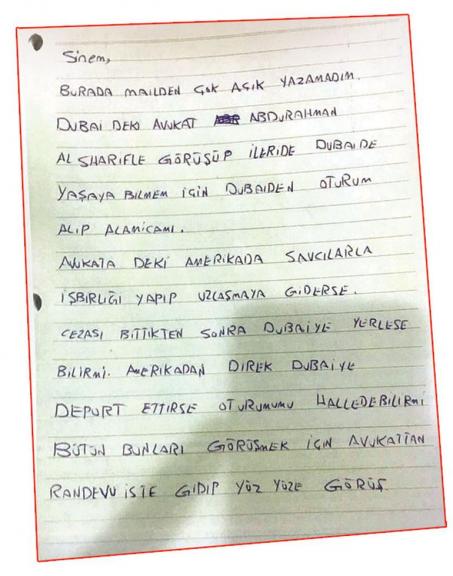 Sinem,
BURADA MAILDEN ÇOK AÇIK YAZAMADIM.
DUBAI DEKI AVUKAT ABDURAHMAN
AL SHARIFLE GÖRÜŞÜP İLERIDE DUBAIDE
YAŞAYA BILMEM IÇIN DUBAIDEN OTURUM
ALIP ALAMICAMI.
AVUKATA DEKI AMERIKADA SAVCILARLA
İŞBIRLIĞI YAPIP UZLAŞMAYA GIDERSE.
CEZASI BITTIKTEN SONRA DUBAIYE YERLEŞE
BILIRMI. AMERIKADAN DIREK DUBAIYE
DEPORT ETTIRSE OTURUMUMU HALLEDEBILIRMI
BÜTÜN BUNLARI GÖRÜŞMEK IÇIN AVUKATTAN
RANDEVU ISTE GIDIP YÜZ YÜZE GÖRÜŞ